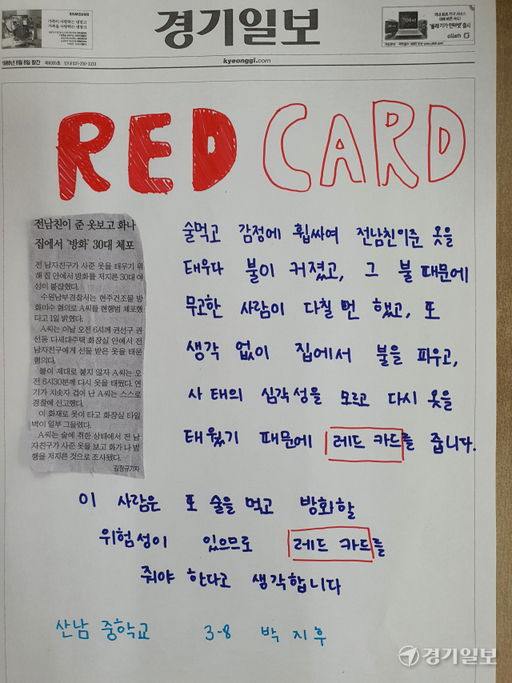 경기일보
kyeonggi.com
RED CARD
전남친이 준 옷보고 화나
집에서 '방화' 30대 체포
전 남자친구가 사준 옷을 태우기 위
해 집 안에서 방화를 저지른 30대 여
성이 붙잡혔다.
수원남부경찰서는 현주건조물 방
화미수 혐의로 A씨를 현행범 체포했
다고 1일 밝혔다.
A씨는 이날 오전 6시께 권선구 권
선동 다세대주택 화장실 안에서 전
남자친구에게 선물 받은 옷을 태운
혐의다.
불이 제대로 붙지 않자 A씨는 오
전 6시30분께 다시 옷을 태웠다. 연
기가 치솟자 겁이 난 A씨는 스스로
경찰에 신고했다.
이 화재로 옷이 타고 화장실 타일
벽이 일부 그을렸다.
A씨는 술에 취한 상태에서 전 남
자친구가 사준 옷을 보고 화가 나 범
행을 저지른 것으로 조사됐다.
김정규기자
술먹고 감정에 휩싸여 전남친이준 옷을
태우다 불이 커졌고, 그 불 때문에
무고한 사람이 다칠 뻔 했고, 또
생각 없이 집에서 불을 피우고,
사태의 심각성을 모르고 다시 옷을
태웠기 때문에 레드 카드를 줍니다.
이 사람은 또 술을 먹고 방화할
위험성이 있으므로 레드 카드를
줘야 한다고 생각합니다
산남 중학교 3-8 박지후
경기일보